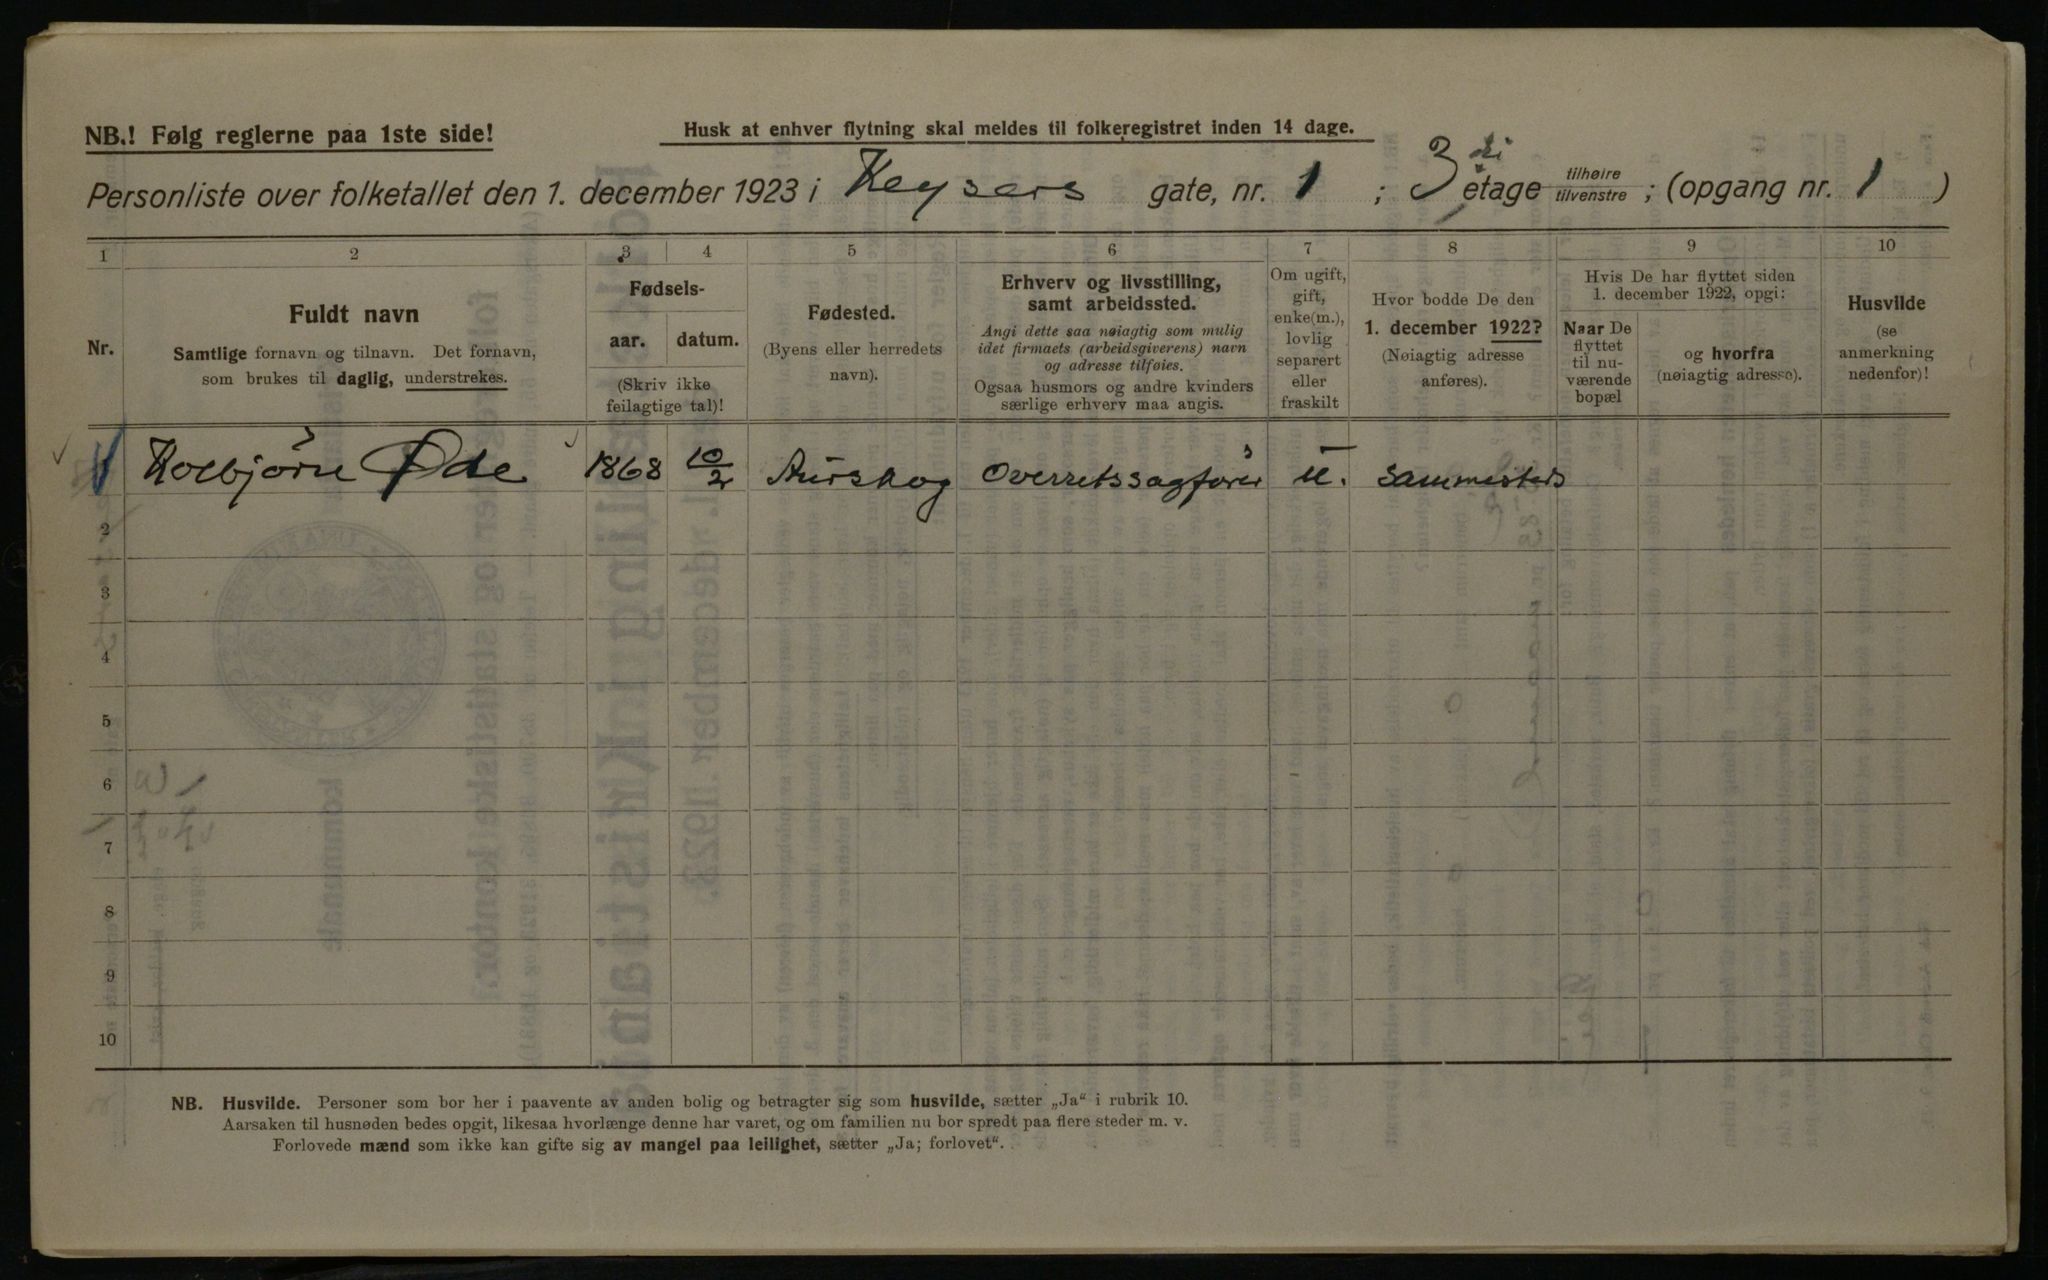 NB.! Følg reglerne paa 1ste side!
Husk at enhver flytning skal meldes til folkeregistret inden 14 dage.
Personliste over folketallet den 1. december 1923 i Keysers gate, nr. 1 ; 3 di etage tilhøire tilvenstre ; (opgang nr. 1 )
1 2 3 4 5 6 7 8 9 10
Nr.
Fuldt navn
Samtlige fornavn og tilnavn. Det fornavn,
som brukes til daglig, understrekes.
Fødsels-
aar. datum.
(Skriv ikke
feilagtige tal)!
Fødested.
(Byens eller herredets
navn).
Erhverv og livsstilling,
samt arbeidssted.
Angi dette saa nøiagtig som mulig
idet firmaets (arbeidsgiverens) navn
og adresse tilføies.
Ogsaa husmors og andre kvinders
særlige erhverv maa angis.
Om ugift,
gift,
enke(m.),
lovlig
separert
eller
fraskilt
Hvor bodde De den
1. december 1922?
(Nøiagtig adresse
anføres).
Hvis De har flyttet siden
1. december 1922, opgi:
Naar De
flyttet
til nu-
værende
bopæl
og hvorfra
(nøiagtig adresse).
Husvilde
(se
anmerkning
nedenfor)!
1 Kolbjørn Øde 1868 10/2 Aurskog Overretssagfører u. sammesteds
2
3
4
5
6
7
8
9
10
NB. Husvilde. Personer som bor her i paavente av anden bolig og betragter sig som husvilde, sætter „Ja“ i rubrik 10.
Aarsaken til husnøden bedes opgit, likesaa hvorlænge denne har varet, og om familien nu bor spredt paa flere steder m. v.
Forlovede mænd som ikke kan gifte sig av mangel paa leilighet, sætter „Ja; forlovet“.